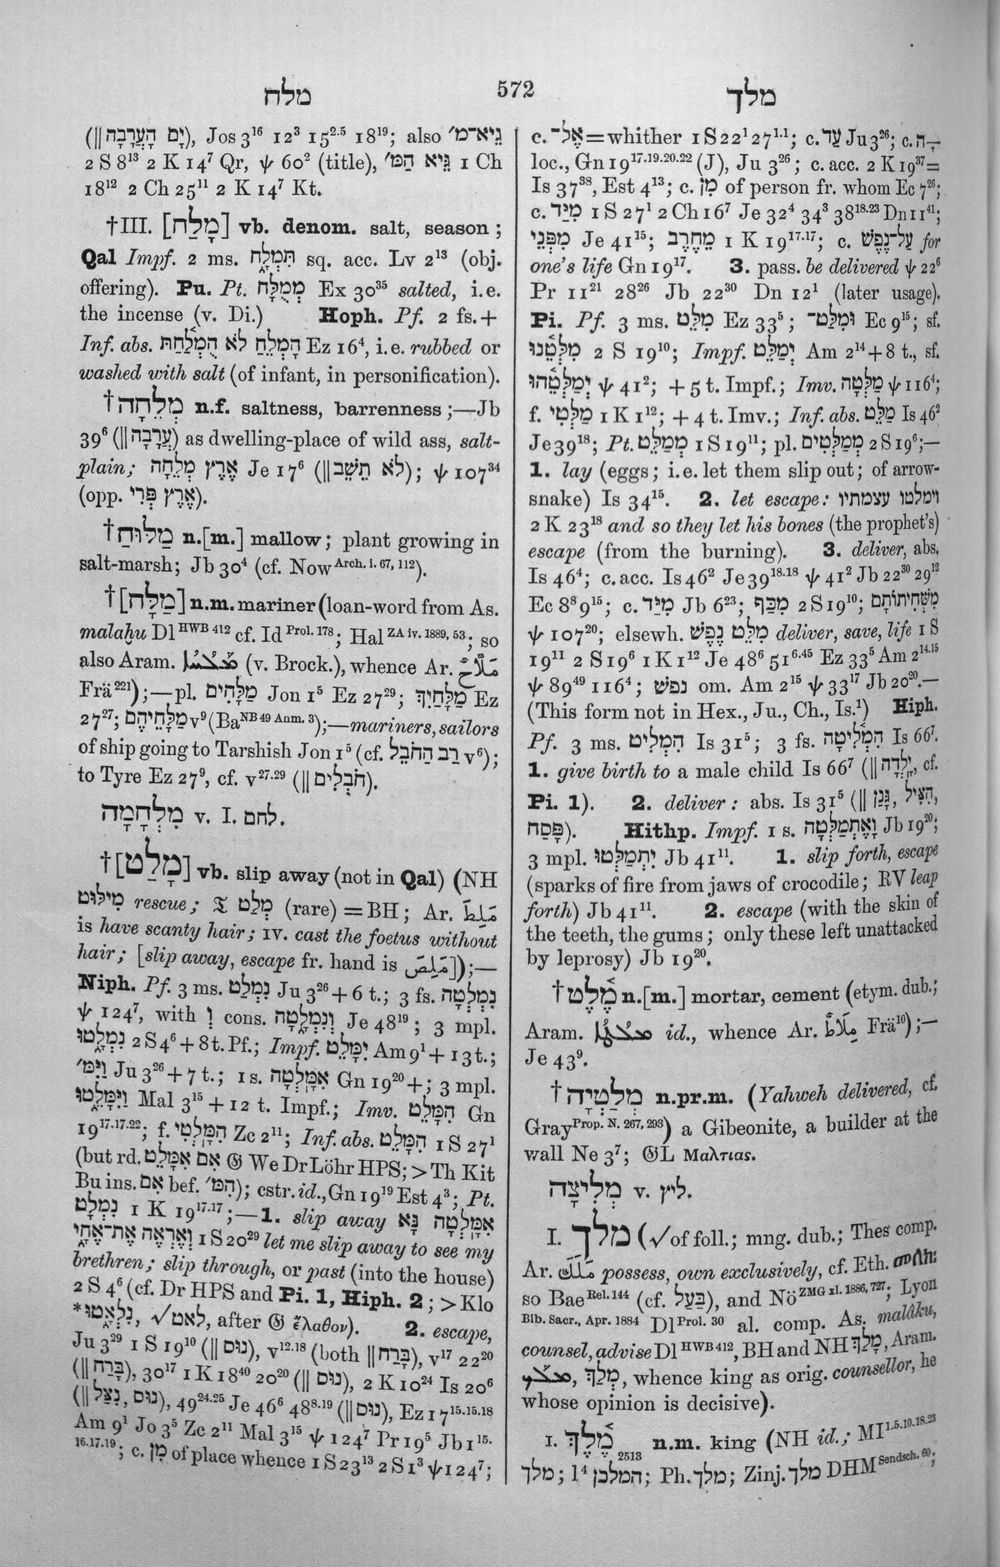 מלח 572 מלך
(‖ יָם הָעֲרָבָה), Jos 3¹⁶ 12³ 15²·⁵ 18¹⁹; also גֵּיא־מ׳
2 S 8¹³ 2 K 14⁷ Qr, ψ 60² (title), גֵּיא הַמּ׳ 1 Ch
18¹² 2 Ch 25¹¹ 2 K 14⁷ Kt.
†III. [מָלַח] vb. denom. salt, season;
Qal Impf. 2 ms. תִּמְלָח sq. acc. Lv 2¹³ (obj.
offering). Pu. Pt. מְמֻלָּח Ex 30³⁵ salted, i.e.
the incense (v. Di.) Hoph. Pf. 2 fs. +
Inf. abs. הָמְלֵחַ לֹא הֻמְלַחַתְּ Ez 16⁴, i.e. rubbed or
washed with salt (of infant, in personification).
†מְלֵחָה n.f. saltness, barrenness;—Jb
39⁶ (‖ עֲרָבָה) as dwelling-place of wild ass, salt-
plain; אֶרֶץ מְלֵחָה Je 17⁶ (‖ לֹא תֵשֵׁב); ψ 107³⁴
(opp. אֶרֶץ פְּרִי).
†מַלּוּחַ n.[m.] mallow; plant growing in
salt-marsh; Jb 30⁴ (cf. Now Arch. i. 67, 112).
†[מַלָּח] n.m. mariner (loan-word from As.
malaḫu Dl HWB 412 cf. Id Prol. 178; Hal ZA iv. 1889, 53; so
also Aram. ܡܠܚܐ (v. Brock.), whence Ar. مَلَّاح
Frä²²¹);—pl. מַלָּחִים Jon 1⁵ Ez 27²⁹; מַלָּחַיִךְ Ez
27²⁷; מַלָּחֵיהֶם v⁹ (Ba NB 49 Anm. 3);—mariners, sailors
of ship going to Tarshish Jon 1⁵ (cf. רַב הַחֹבֵל v⁶);
to Tyre Ez 27⁹, cf. v²⁷·²⁹ (‖ חֹבְלִים).
מִלְחָמָה v. I. לחם.
†[מָלַט] vb. slip away (not in Qal) (NH
מִילּוּט rescue; 𝔗 מְלַט (rare) = BH; Ar. مَلِطَ
is have scanty hair; IV. cast the foetus without
hair; [slip away, escape fr. hand is مَلِصَ]);—
Niph. Pf. 3 ms. נִמְלַט Ju 3²⁶ + 6 t.; 3 fs. נִמְלָטָה
ψ 124⁷, with וְ cons. וְנִמְלָטָה Je 48¹⁹; 3 mpl.
נִמְלָטוּ 2 S 4⁶ + 8 t. Pf.; Impf. יִמָּלֵט Am 9¹ + 13 t.;
וַיִּמּ׳ Ju 3²⁶ + 7 t.; 1 s. אִמָּלְטָה Gn 19²⁰ +; 3 mpl.
וַיִּמָּלֵטוּ Mal 3¹⁵ + 12 t. Impf.; Imv. הִמָּלֵט Gn
19¹⁷·¹⁷·²²; f. הִמָּלְטִי Zc 2¹¹; Inf. abs. הִמָּלֵט 1 S 27¹
(but rd. אִם אִמָּלֵט 𝔊 We Dr Löhr HPS; > Th Kit
Bu ins. אִם bef. הִמּ׳); cstr. id., Gn 19¹⁹ Est 4³; Pt.
נִמְלָט 1 K 19¹⁷·¹⁷;—1. slip away אִמָּלְטָה נָּא
וְאֶרְאֶה אֶת־אֶחָי 1 S 20²⁹ let me slip away to see my
brethren; slip through, or past (into the house)
2 S 4⁶ (cf. Dr HPS and Pi. 1, Hiph. 2; > Klo
*נִלְאֲטוּ, √לאט, after 𝔊 ἔλαθον). 2. escape,
Ju 3²⁹ 1 S 19¹⁰ (‖ נוּס), v¹²·¹⁸ (both ‖ בָּרַח), v¹⁷ 22²⁰
(‖ בָּרַח), 30¹⁷ 1 K 18⁴⁰ 20²⁰ (‖ נוּס), 2 K 10²⁴ Is 20⁶
(‖ נוּס, נִצַּל), 49²⁴·²⁵ Je 46⁶ 48⁸·¹⁹ (‖ נוּס), Ez 17¹⁵·¹⁵·¹⁸
Am 9¹ Jo 3⁵ Zc 2¹¹ Mal 3¹⁵ ψ 124⁷ Pr 19⁵ Jb 1¹⁵·
¹⁶·¹⁷·¹⁹; c. מִן of place whence 1 S 23¹³ 2 S 1³ ψ 124⁷;
c. אֶל־ = whither 1 S 22¹ 27¹·¹; c. עַד Ju 3²⁶; c. ־ָה
loc., Gn 19¹⁷·¹⁹·²⁰·²² (J), Ju 3²⁶; c. acc. 2 K 19³⁷ =
Is 37³⁸, Est 4¹³; c. מִן of person fr. whom Ec 7²⁶;
c. מִיַּד 1 S 27¹ 2 Ch 16⁷ Je 32⁴ 34³ 38¹⁸·²³ Dn 11⁴¹;
מִפְּנֵי Je 41¹⁵; מֵחֶרֶב 1 K 19¹⁷·¹⁷; c. עַל־נֶפֶשׁ for
one's life Gn 19¹⁷. 3. pass. be delivered ψ 22⁶
Pr 11²¹ 28²⁶ Jb 22³⁰ Dn 12¹ (later usage).
Pi. Pf. 3 ms. מִלֵּט Ez 33⁵; וּמִלַּט־ Ec 9¹⁵; sf.
מִלְּטָנוּ 2 S 19¹⁰; Impf. יְמַלֵּט Am 2¹⁴ + 8 t., sf.
יְמַלְּטֵהוּ ψ 41²; + 5 t. Impf.; Imv. מַלְּטָה ψ 116⁴;
f. מַלְּטִי 1 K 1¹²; + 4 t. Imv.; Inf. abs. מַלֵּט Is 46²
Je 39¹⁸; Pt. מְמַלֵּט 1 S 19¹¹; pl. מְמַלְּטִים 2 S 19⁶;—
1. lay (eggs; i.e. let them slip out; of arrow-
snake) Is 34¹⁵. 2. let escape: וימלטו עצמתיו
2 K 23¹⁸ and so they let his bones (the prophet's)
escape (from the burning). 3. deliver, abs.
Is 46⁴; c. acc. Is 46² Je 39¹⁸·¹⁸ ψ 41² Jb 22³⁰ 29¹²
Ec 8⁸ 9¹⁵; c. מִיַּד Jb 6²³; מִכַּף 2 S 19¹⁰; מִשְּׁחִיתוֹתָם
ψ 107²⁰; elsewh. מִלֵּט נֶפֶשׁ deliver, save, life 1 S
19¹¹ 2 S 19⁶ 1 K 1¹² Je 48⁶ 51⁶·⁴⁵ Ez 33⁵ Am 2¹⁴·¹⁵
ψ 89⁴⁹ 116⁴; נפשׁ om. Am 2¹⁵ ψ 33¹⁷ Jb 20²⁰.—
(This form not in Hex., Ju., Ch., Is.¹) Hiph.
Pf. 3 ms. הִמְלִיט Is 31⁵; 3 fs. הִמְלִיטָה Is 66⁷.
1. give birth to a male child Is 66⁷ (‖ יָלְדָה, cf.
Pi. 1). 2. deliver: abs. Is 31⁵ (‖ גָּנַן, הִצִּיל,
פָּסַח). Hithp. Impf. 1 s. וָאֶתְמַלְּטָה Jb 19²⁰;
3 mpl. יִתְמַלָּטוּ Jb 41¹¹. 1. slip forth, escape
(sparks of fire from jaws of crocodile; RV leap
forth) Jb 41¹¹. 2. escape (with the skin of
the teeth, the gums; only these left unattacked
by leprosy) Jb 19²⁰.
†מֶלֶט n.[m.] mortar, cement (etym. dub.;
Aram. ܡܠܛܐ id., whence Ar. مِلَاط Frä¹⁰);—
Je 43⁹.
†מְלַטְיָה n.pr.m. (Yahweh delivered, cf.
Gray Prop. N. 267, 293) a Gibeonite, a builder at the
wall Ne 3⁷; 𝔊L Μαλτιας.
מְלִיצָה v. ליץ.
I. מלך (√ of foll.; mng. dub.; Thes comp.
Ar. مَلَكَ possess, own exclusively, cf. Eth. መለከ:
so Bae Rel. 144 (cf. בַּעַל), and Nö ZMG xl. 1886, 727; Lyon
Bib. Sacr., Apr. 1884 Dl Prol. 30 al. comp. As. malâku,
counsel, advise Dl HWB 412, BH and NH מָלַךְ, Aram.
ܡܠܟ, מְלַךְ, whence king as orig. counsellor, he
whose opinion is decisive).
I. מֶלֶךְ 2513 n.m. king (NH id.; MI¹·⁵·¹⁰·¹⁸·²³
מלך; l⁴ המלכן; Ph. מלך; Zinj. מלך DHM Sendsch. 60;